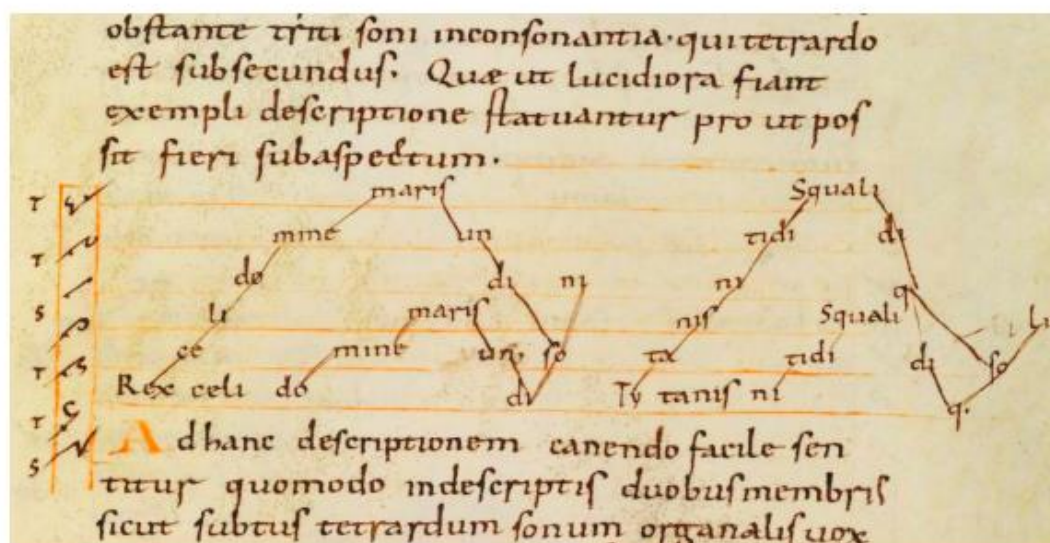 obstante triti soni inconsonantia· qui tetrardo
est subsecundus. Quæ ut lucidiora fiant
exempli descriptione statuantur pro ut pos
sit fieri sub aspectum.
maris Squali
T
mine un tidi di
T
do di ni ni q
S
li maris nis Squali li
ce mine un so ta tidi di so
T
Rex celi do di Ty tanis ni q.
T
S
Ad hanc descriptionem canendo facile sen
titur quomodo in descriptis duobus membris
sicut subtus tetrardum sonum organalis uox